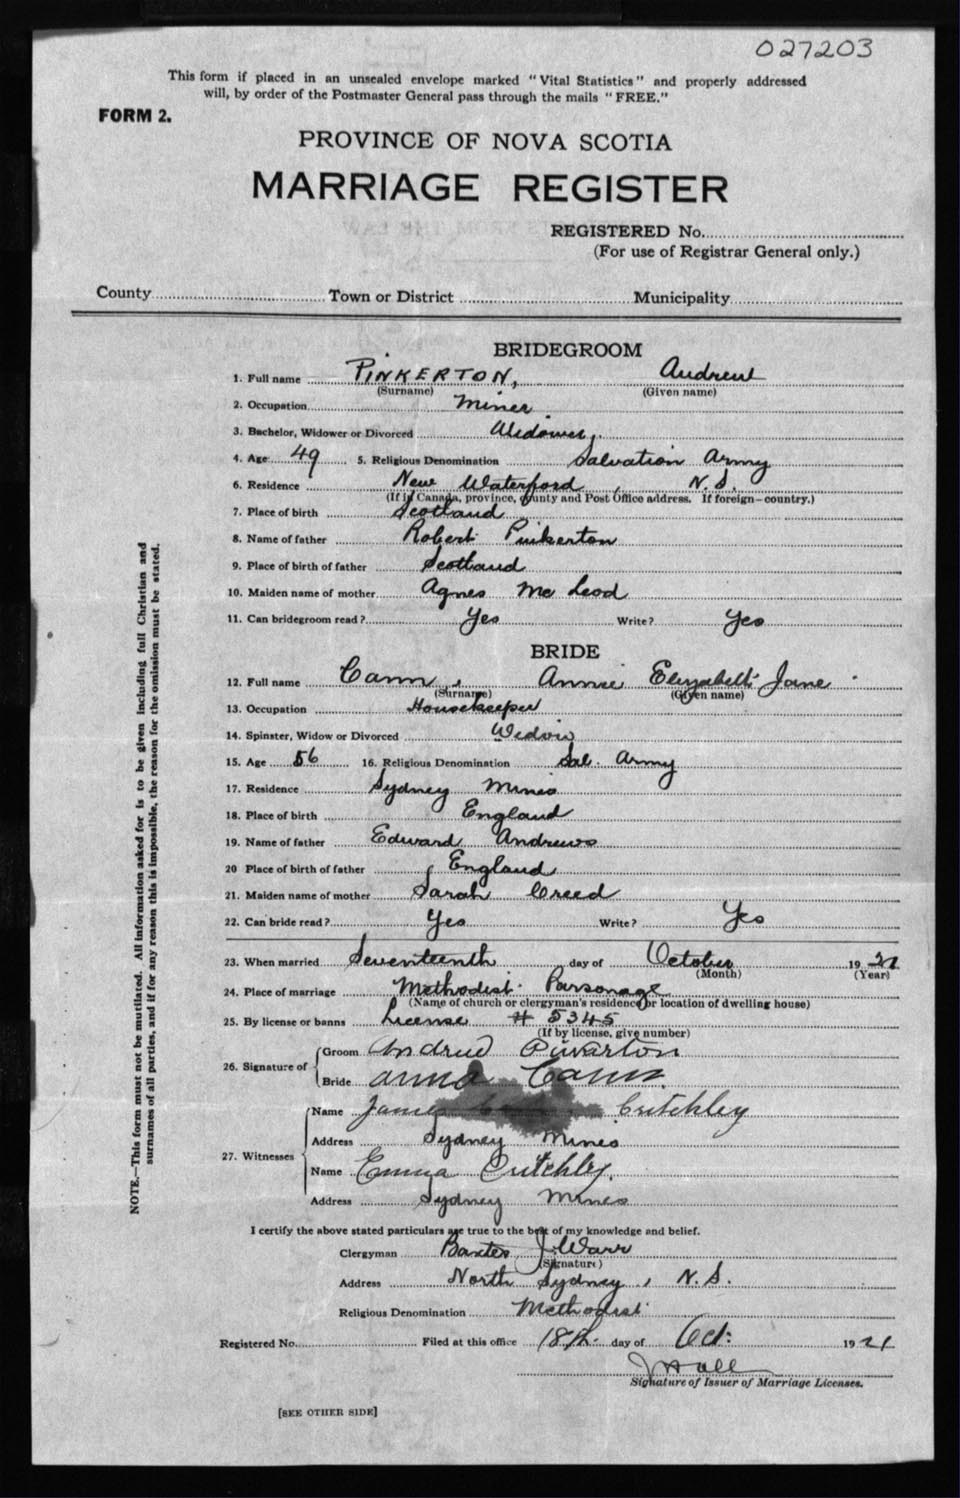 027203
This form if placed in an unsealed envelope marked "Vital Statistics" and properly addressed
will, by order of the Postmaster General pass through the mails "FREE."
FORM 2.
PROVINCE OF NOVA SCOTIA
MARRIAGE REGISTER
REGISTERED No.
(For use of Registrar General only.)
County Town or District Municipality
BRIDEGROOM
1. Full name PINKERTON, Andrew
(Surname) (Given name)
2. Occupation Miner
3. Bachelor, Widower or Divorced Widower
4. Age 49 5. Religious Denomination Salvation Army
6. Residence New Waterford, N.S.
(If in Canada, province, county and Post Office address. If foreign—country.)
7. Place of birth Scotland
8. Name of father Robert Pinkerton
9. Place of birth of father Scotland
10. Maiden name of mother Agnes Mc Leod
11. Can bridegroom read? Yes Write? Yes
BRIDE
12. Full name Cann, Annie Elizabeth Jane
(Surname) (Given name)
13. Occupation Housekeeper
14. Spinster, Widow or Divorced Widow
15. Age 56 16. Religious Denomination Sal. Army
17. Residence Sydney Mines
18. Place of birth England
19. Name of father Edward Andrews
20 Place of birth of father England
21. Maiden name of mother Sarah Creed
22. Can bride read? Yes Write? Yes
23. When married Seventeenth day of October 1921
(Month) (Year)
24. Place of marriage Methodist Parsonage
(Name of church or clergyman's residence or location of dwelling house)
25. By license or banns License # 5345
(If by license, give number)
26. Signature of Groom Andrew
Bride Cann
27. Witnesses Name James Critchley
Address Sydney Mines
Name Emma Critchley.
Address Sydney Mines
I certify the above stated particulars are true to the best of my knowledge and belief.
Clergyman Baxter J. Warr
(Signature)
Address North Sydney, N.S.
Religious Denomination Methodist
Registered No. Filed at this office 18th day of Oct. 1921
Hall
Signature of Issuer of Marriage Licenses.
[SEE OTHER SIDE]
NOTE.—This form must not be mutilated. All information asked for is to be given including full Christian and
surnames of all parties, and if for any reason this is impossible, the reason for the omission must be stated.